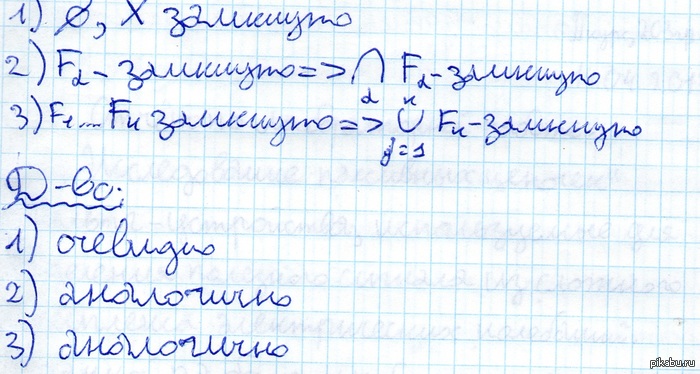 1) ∅, X замкнуто
2) F_α - замкнуто => ⋂_α F_α - замкнуто
3) F_1 ... F_n замкнуто => ⋃_{j=1}^{n} F_n - замкнуто
Д-во:
1) очевидно
2) аналогично
3) аналогично
pikabu.ru